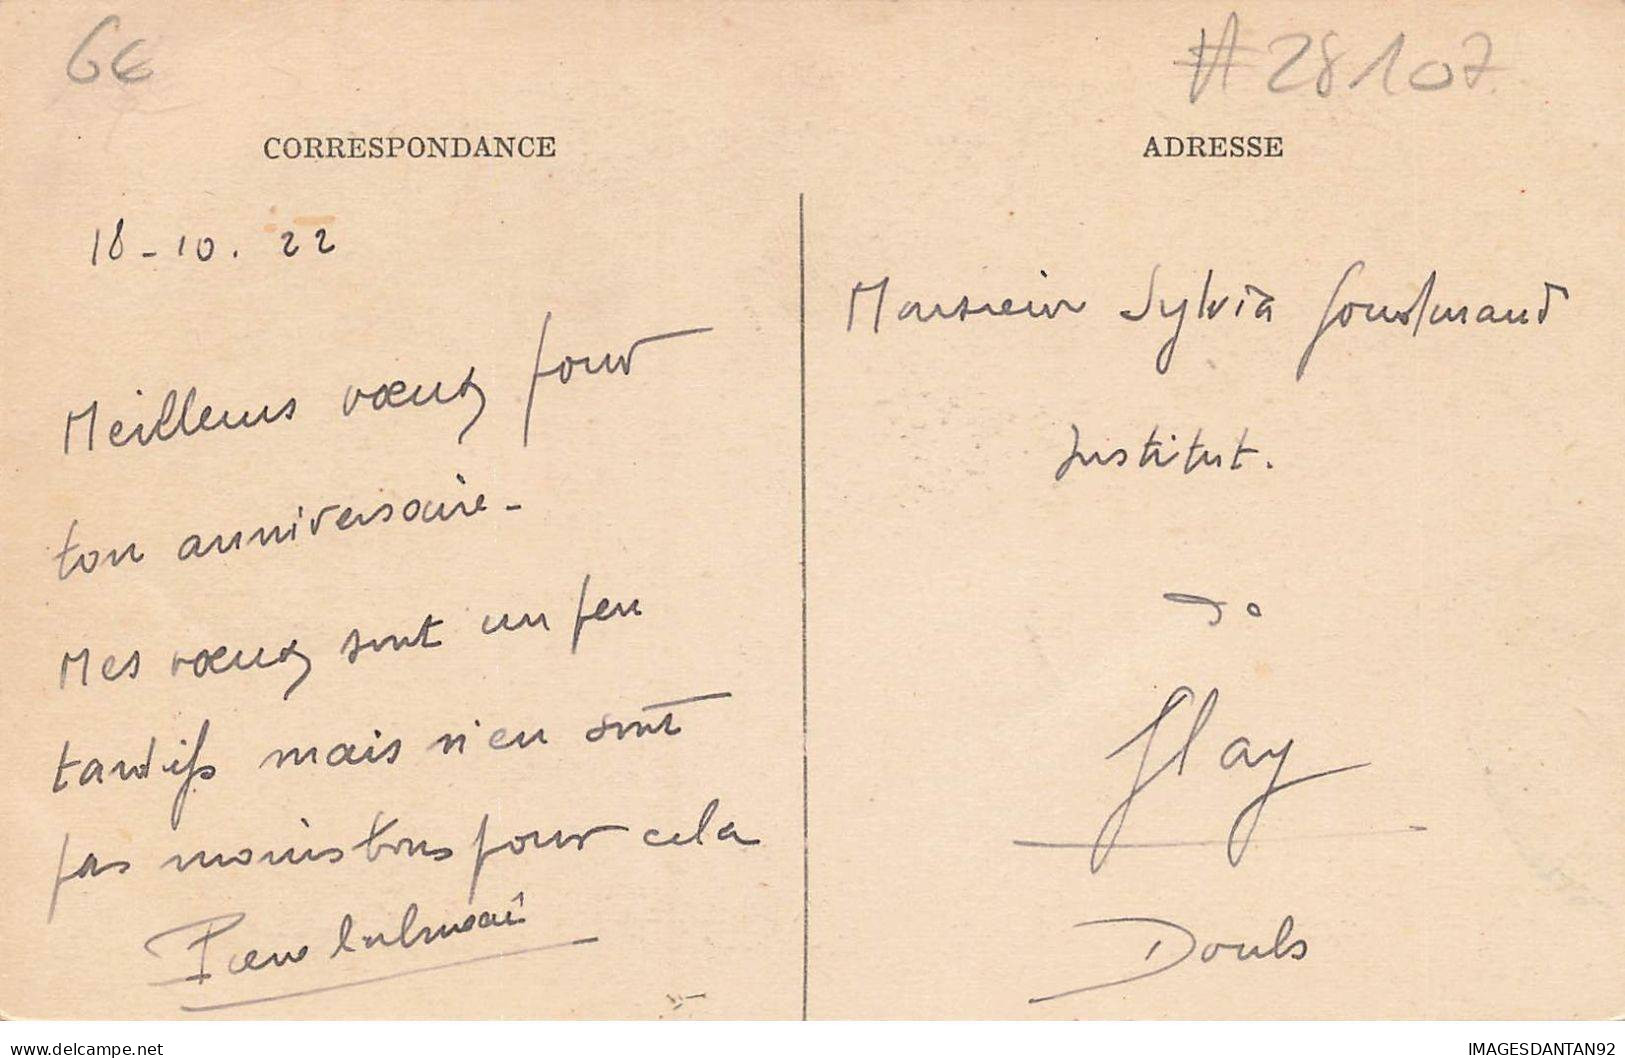 6€
#28107
CORRESPONDANCE
18-10. 22
Meilleurs vœux pour
ton anniversaire -
Mes vœux sont un peu
tardifs mais n'en sont
pas moins bons pour cela
Pierre
ADRESSE
Monsieur Sylvia
Institut.
à
Glay
Doubs
delcampe.net
IMAGESDANTAN92